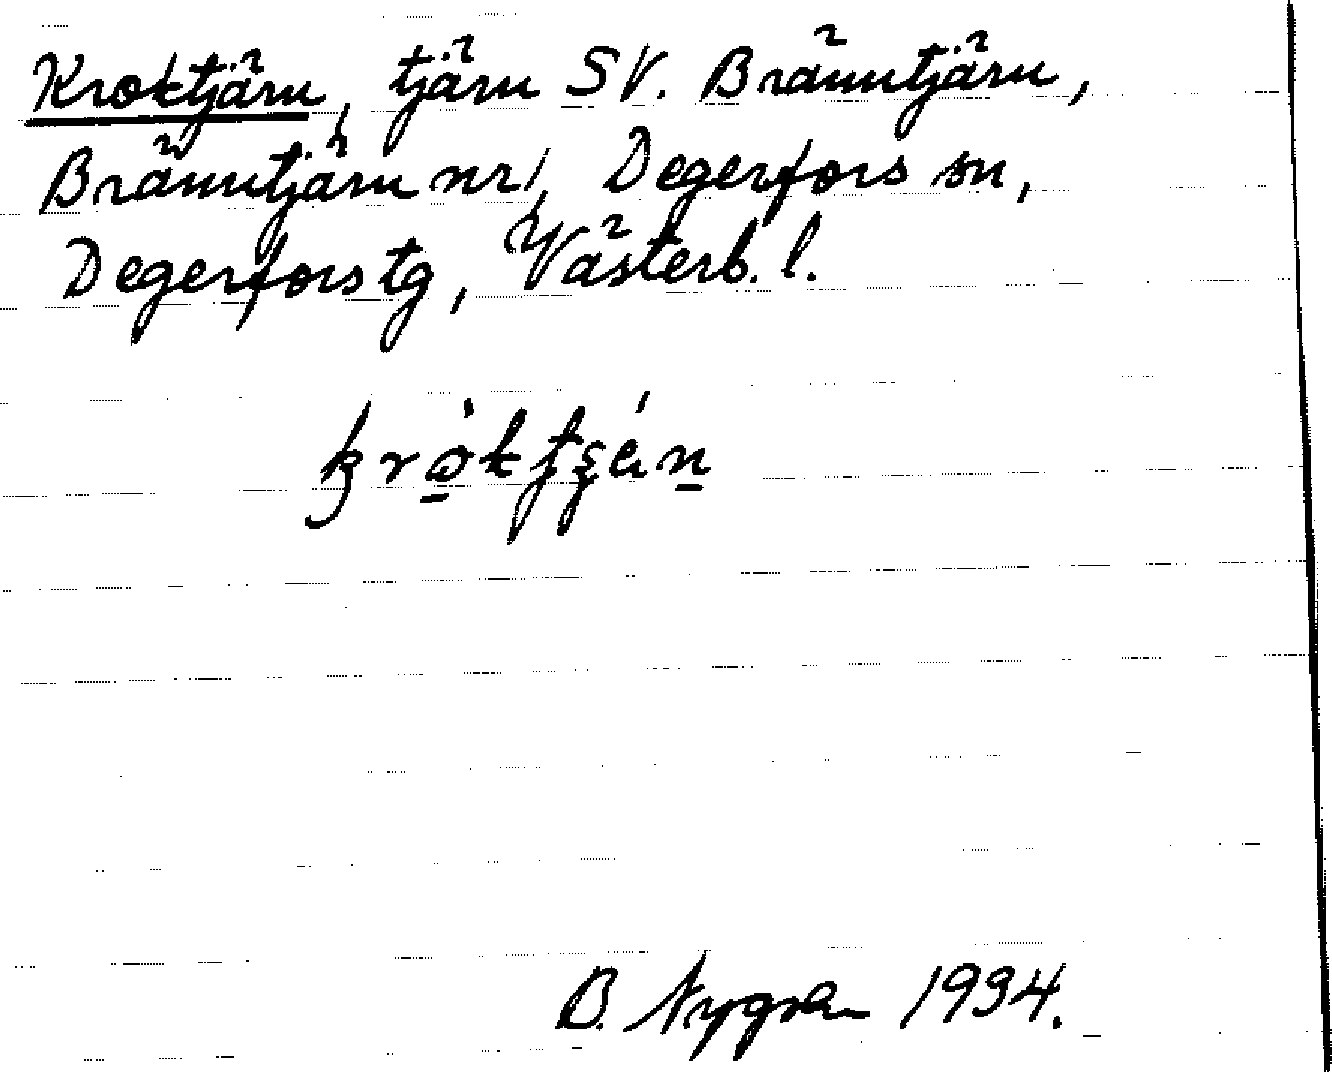 Kroktjärn, tjärn SV. Bränntjärn,
Bränntjärn nr 1, Degerfors sn,
Degerfors tg, Västerb. l.
B. Nygren 1934.